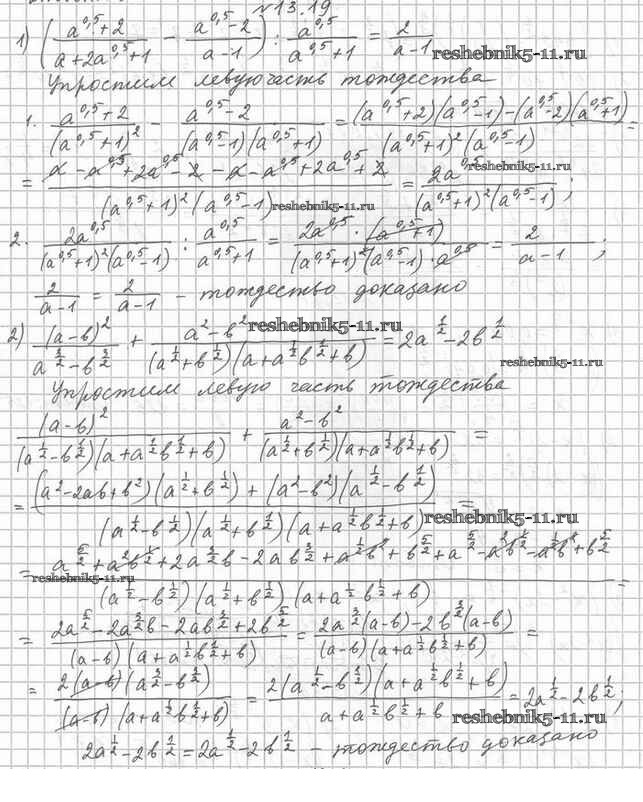 №13.19
1) (a^0,5+2 / a+2a^0,5+1 − a^0,5−2 / a−1) : a^0,5 / a^0,5+1 = 2 / a−1
reshebnik5-11.ru
Упростим левую часть тождества
1. a^0,5+2 / (a^0,5+1)^2 − a^0,5−2 / (a^0,5−1)(a^0,5+1) = (a^0,5+2)(a^0,5−1)−(a^0,5−2)(a^0,5+1) / (a^0,5+1)^2(a^0,5−1) =
= a−a^0,5+2a^0,5−2−a−a^0,5+2a^0,5+2 / (a^0,5+1)^2(a^0,5−1) = 2a^0,5 / (a^0,5+1)^2(a^0,5−1) ;
reshebnik5-11.ru
reshebnik5-11.ru
2. 2a^0,5 / (a^0,5+1)^2(a^0,5−1) : a^0,5 / a^0,5+1 = 2a^0,5·(a^0,5+1) / (a^0,5+1)^2(a^0,5−1)·a^0,5 = 2 / a−1 ;
2 / a−1 = 2 / a−1 − тождество доказано
reshebnik5-11.ru
2) (a−b)^2 / a^3/2−b^3/2 + a^2−b^2 / (a^1/2+b^1/2)(a+a^1/2b^1/2+b) = 2a^1/2−2b^1/2
reshebnik5-11.ru
Упростим левую часть тождества
(a−b)^2 / (a^1/2−b^1/2)(a+a^1/2b^1/2+b) + a^2−b^2 / (a^1/2+b^1/2)(a+a^1/2b^1/2+b) =
= (a^2−2ab+b^2)(a^1/2+b^1/2)+(a^2−b^2)(a^1/2−b^1/2) / (a^1/2−b^1/2)(a^1/2+b^1/2)(a+a^1/2b^1/2+b) =
reshebnik5-11.ru
= a^5/2+a^2b^1/2+2a^3/2b−2ab^3/2+a^1/2b^2+b^5/2+a^5/2−a^2b^1/2−a^1/2b^2+b^5/2 / (a^1/2−b^1/2)(a^1/2+b^1/2)(a+a^1/2b^1/2+b) =
reshebnik5-11.ru
= 2a^5/2−2a^3/2b−2ab^3/2+2b^5/2 / (a−b)(a+a^1/2b^1/2+b) = 2a^3/2(a−b)−2b^3/2(a−b) / (a−b)(a+a^1/2b^1/2+b) =
= 2(a−b)(a^3/2−b^3/2) / (a−b)(a+a^1/2b^1/2+b) = 2(a^1/2−b^1/2)(a+a^1/2b^1/2+b) / a+a^1/2b^1/2+b = 2a^1/2−2b^1/2 ;
reshebnik5-11.ru
2a^1/2−2b^1/2=2a^1/2−2b^1/2 − тождество доказано